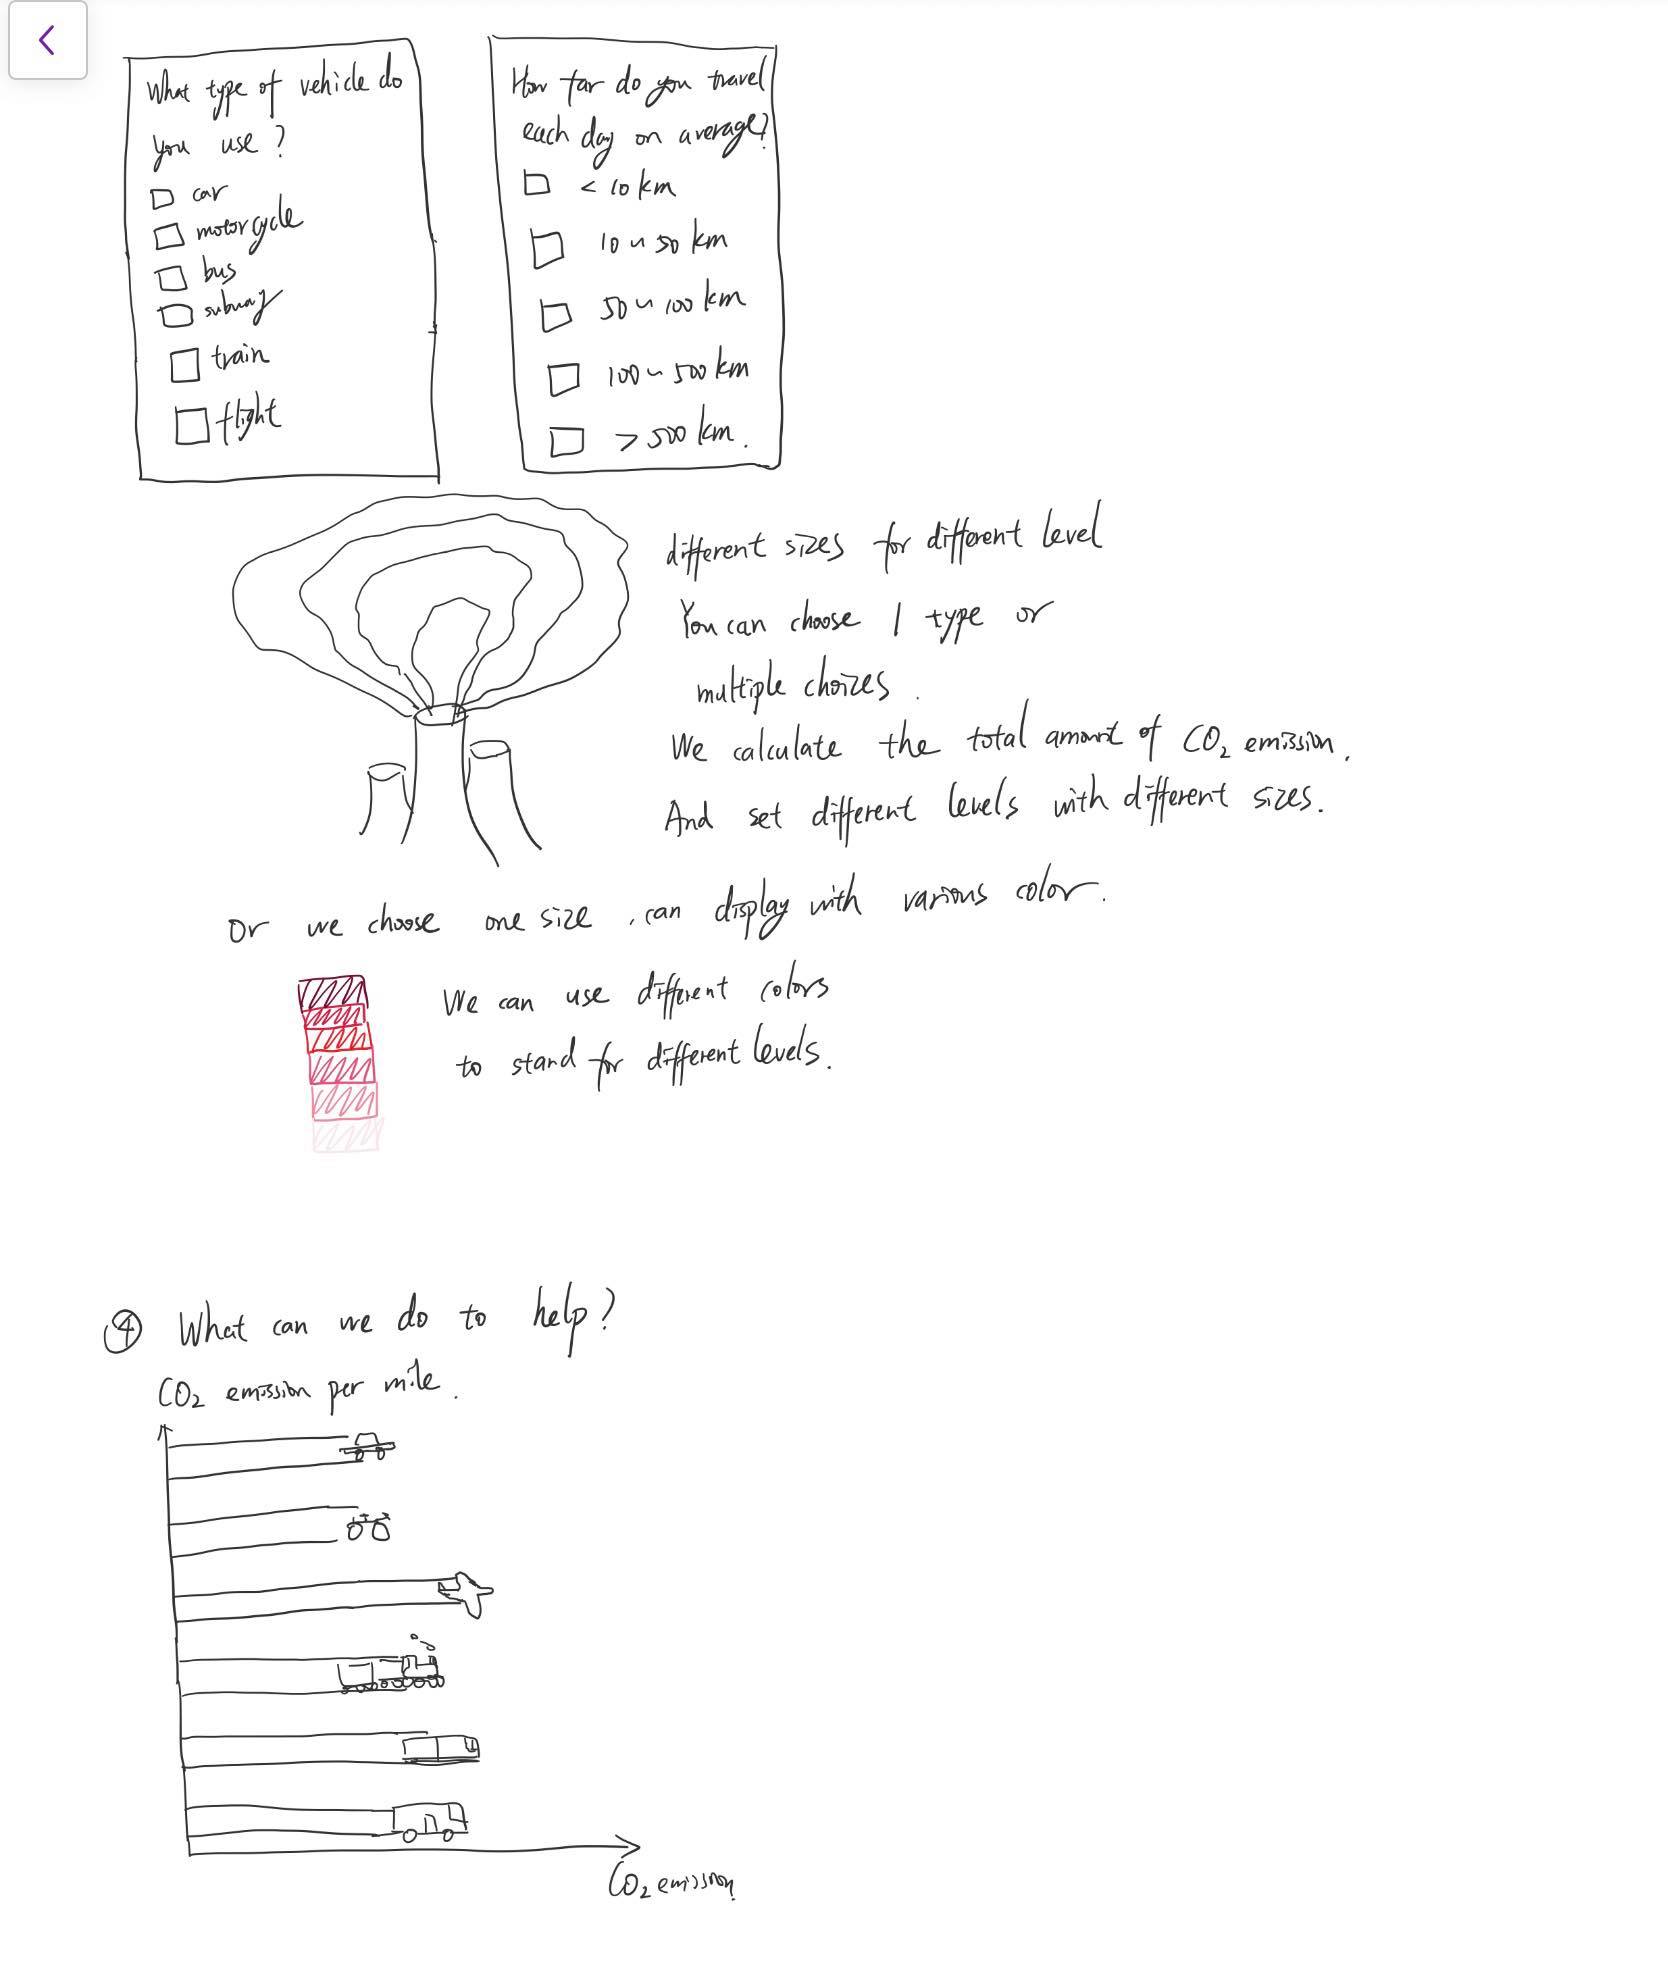 What type of vehicle do
you use?
car
motorcycle
bus
subway
train
flight
How far do you travel
each day on average?
< 10 km
10 ~ 50 km
50 ~ 100 km
100 ~ 500 km
> 500 km.
different sizes for different level
You can choose 1 type or
multiple choices.
We calculate the total amount of CO₂ emission.
And set different levels with different sizes.
Or we choose one size, can display with various color.
We can use different colors
to stand for different levels.
④ What can we do to help?
CO₂ emission per mile.
CO₂ emission